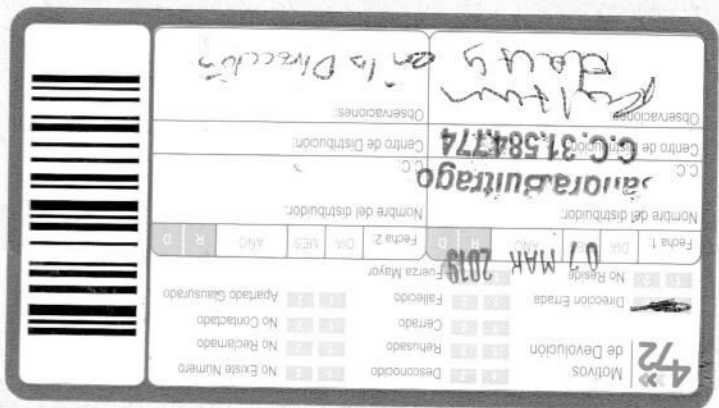 472
Motivos
de Devolución
Desconocido
Rehusado
Cerrado
Fallecido
Fuerza Mayor
No Existe Número
No Reclamado
No Contactado
Apartado Clausurado
Dirección Errada
No Reside
Fecha 1: DIA MES AÑO R D
07 MAR 2019
Fecha 2: DIA MES AÑO R D
Nombre del distribuidor:
Buitrago
C.C.
C.C. 31.584.774
Centro de Distribución:
Observaciones:
Faltan
datos en la Dirección
Nombre del distribuidor:
C.C.
Centro de Distribución:
Observaciones: